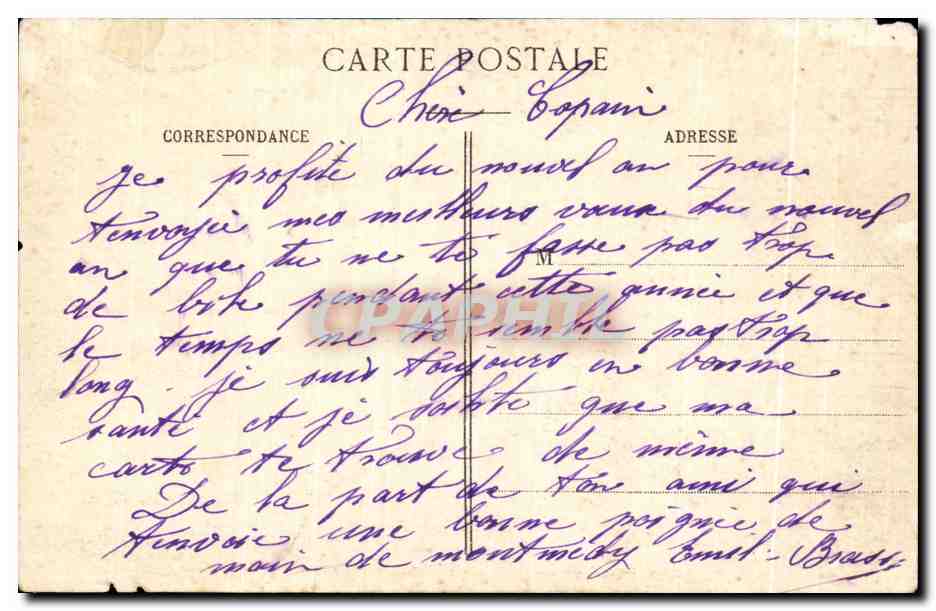 CARTE POSTALE
Chère Copain
CORRESPONDANCE
ADRESSE
M
je profite du nouvel an pour
t'envoyé mes meilleurs vœux du nouvel
an que tu ne te fasse pas trop
de bile pendant cette année et que
le temps ne te semble pas trop
long. je suis toujours en bonne
santé et je souhte que ma
carte te trouve de même
De la part de ton ami qui
t'envoie une bonne poignée de
main de montmédy Emil-
CPAPHIL